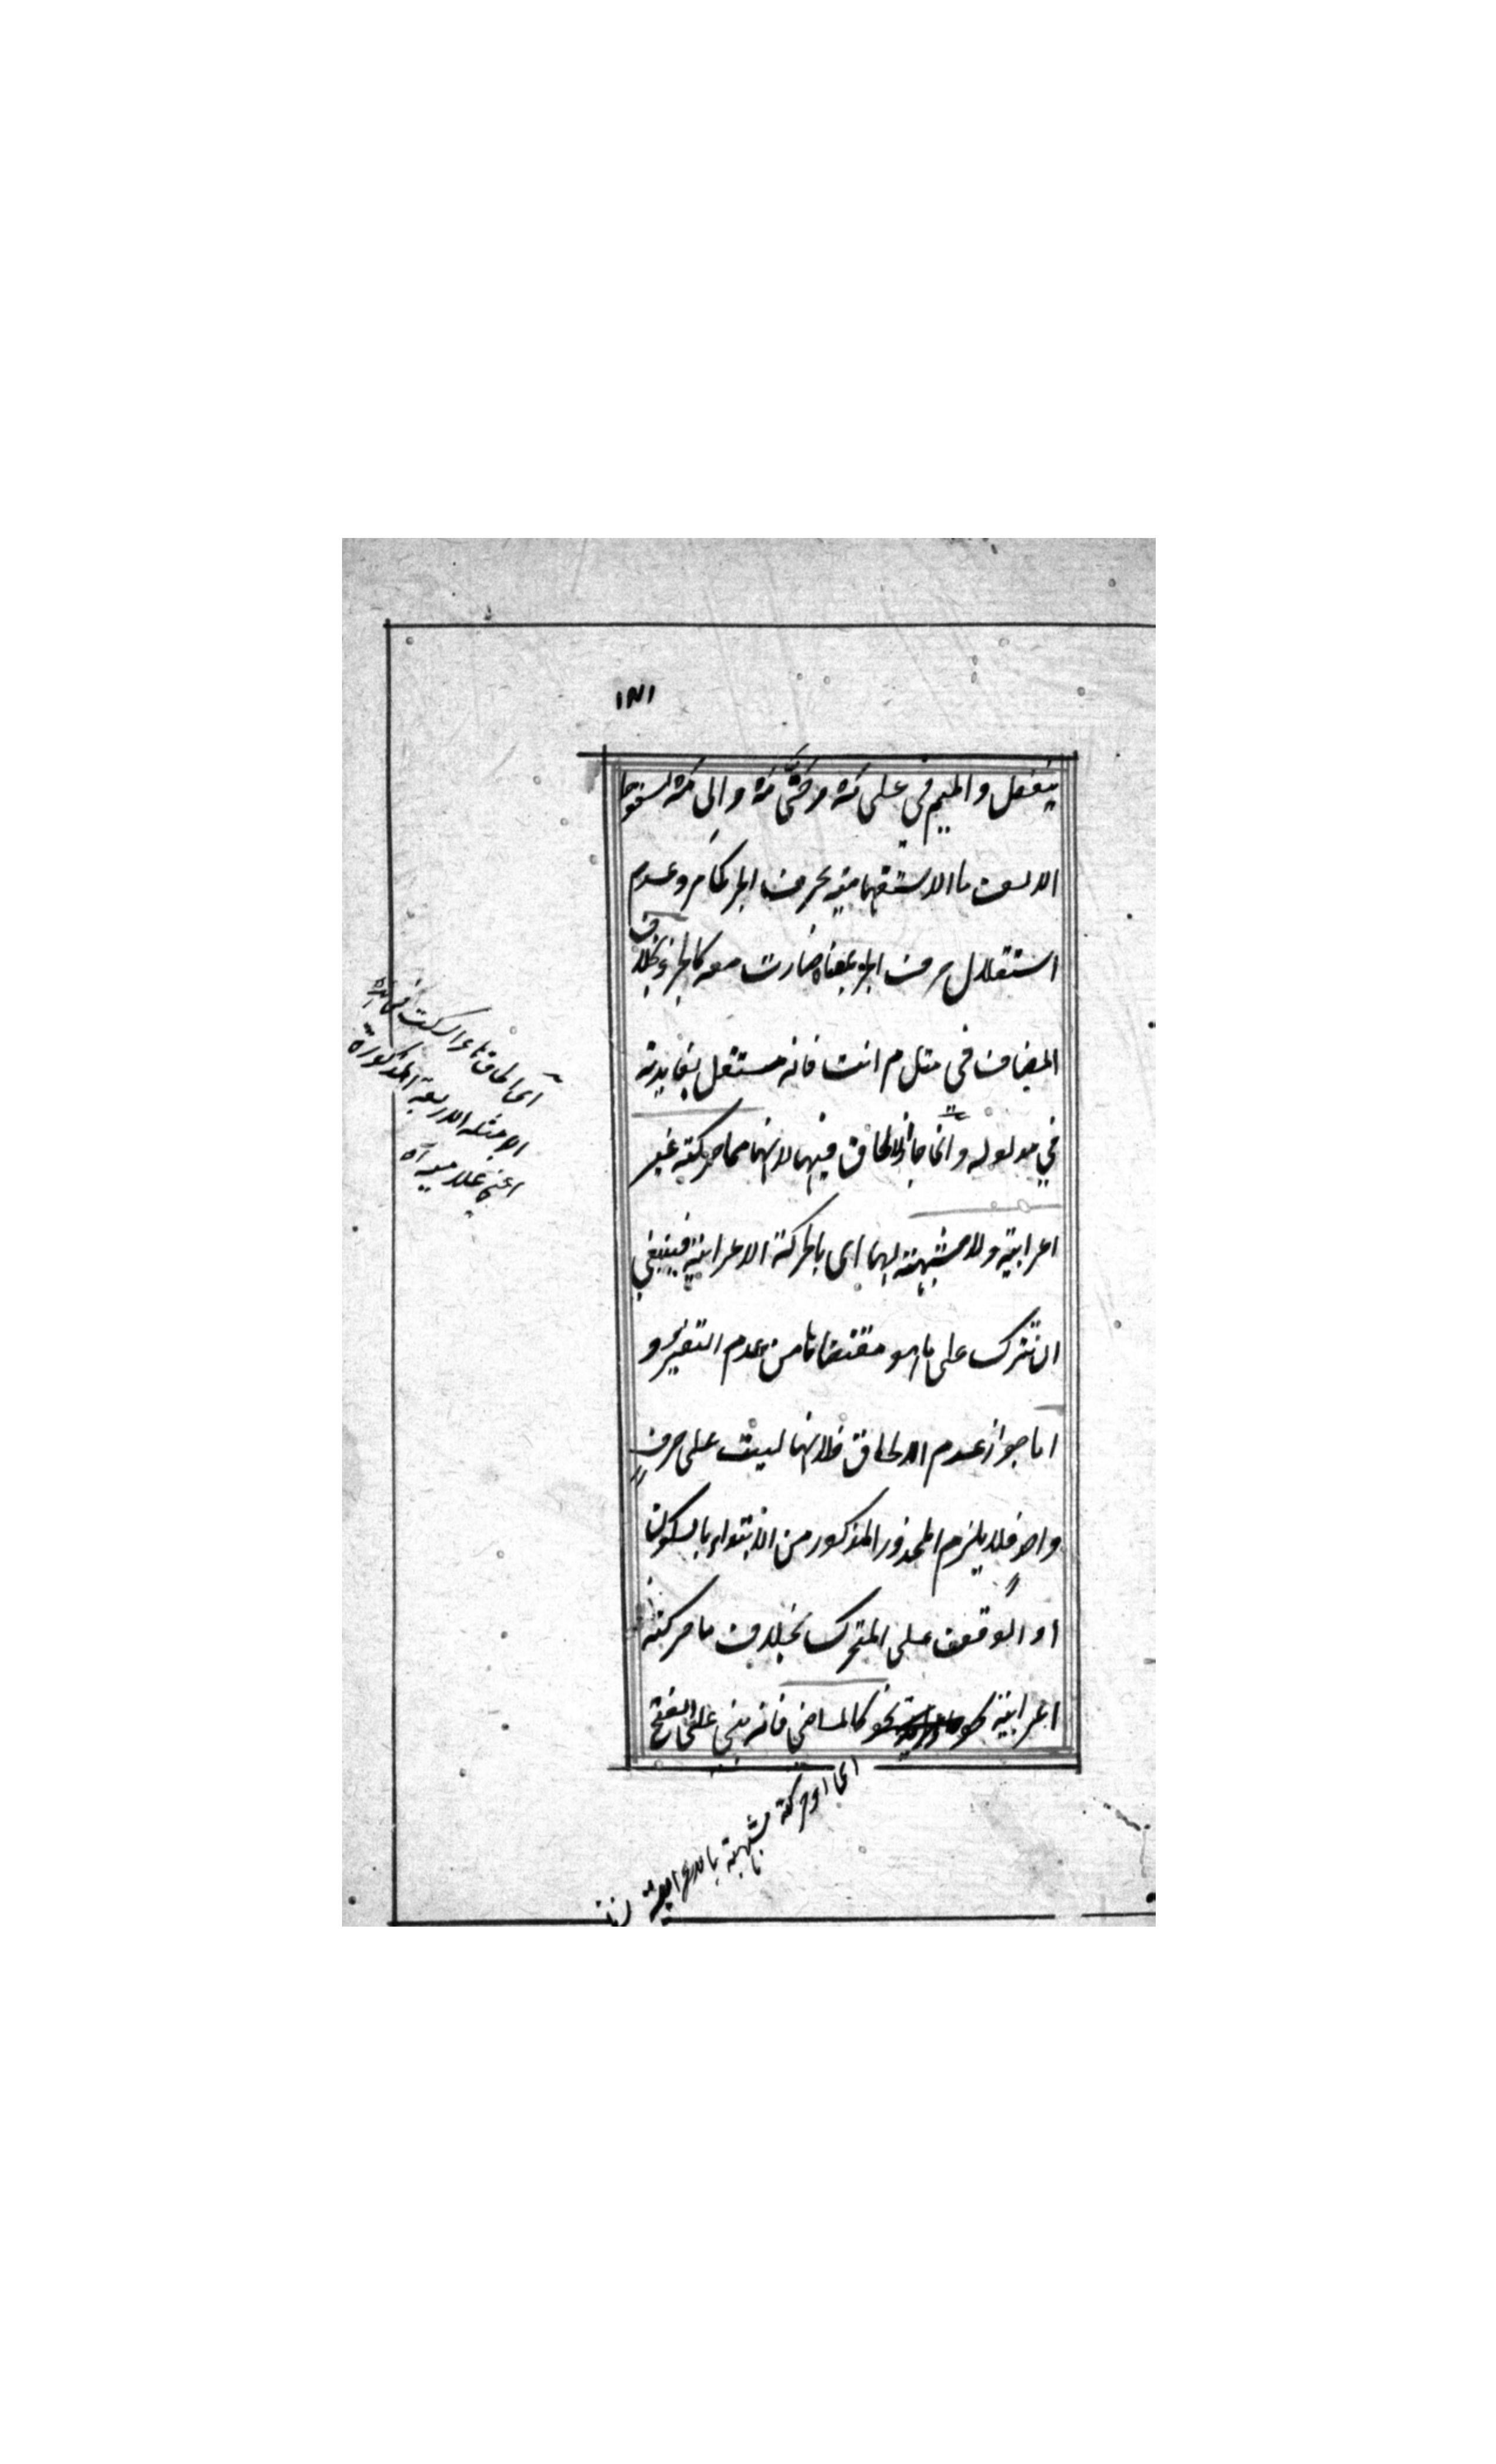 ١٨١
ينفصل والميم في على مه وحتى مه والى مه لسقوط
الالف ما الاستفهامية بحرف الجر كما مر وعدم
استقلال حرف الجر بمعناه فصارت معه كالجزء بخلاف
المضاف في مثل م انت فانه مستقل بفايدته
في مدلوله وانما جاز الالحاق فيهما لانهما مما حركته غير
اعرابية ولا مشبهة بها اى بالحركة الاعرابية فينبغي
ان تترك على ما هو مقتضاها من عدم التغير و
اما جواز عدم الالحاق فلانها ليست على حرف
واحد فلا يلزم المحذور المذكور من الابتداء بالسكون
او الوقف على المتحرك بخلاف ما حركته
اعرابية نحو كالماضي فانه بني على الفتح
اى الحاق هاء السكت في هذه
الامثلة الاربعة المذكورة
اعني علامه اه
اى او حركة مشبهة بالاعرابية